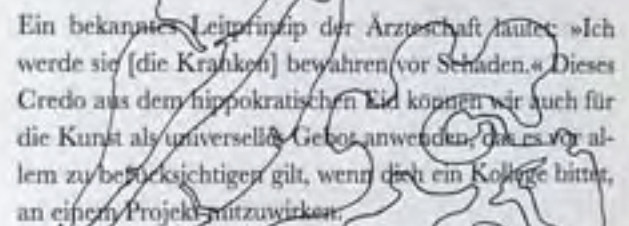 Ein bekanntes Leitprinzip der Ärzteschaft lautet: »Ich
werde sie [die Kranken] bewahren vor Schaden.« Dieses
Credo aus dem hippokratischen Eid können wir auch für
die Kunst als universelles Gebot anwenden, das es vor al-
lem zu berücksichtigen gilt, wenn dich ein Kollege bittet,
an einem Projekt mitzuwirken.